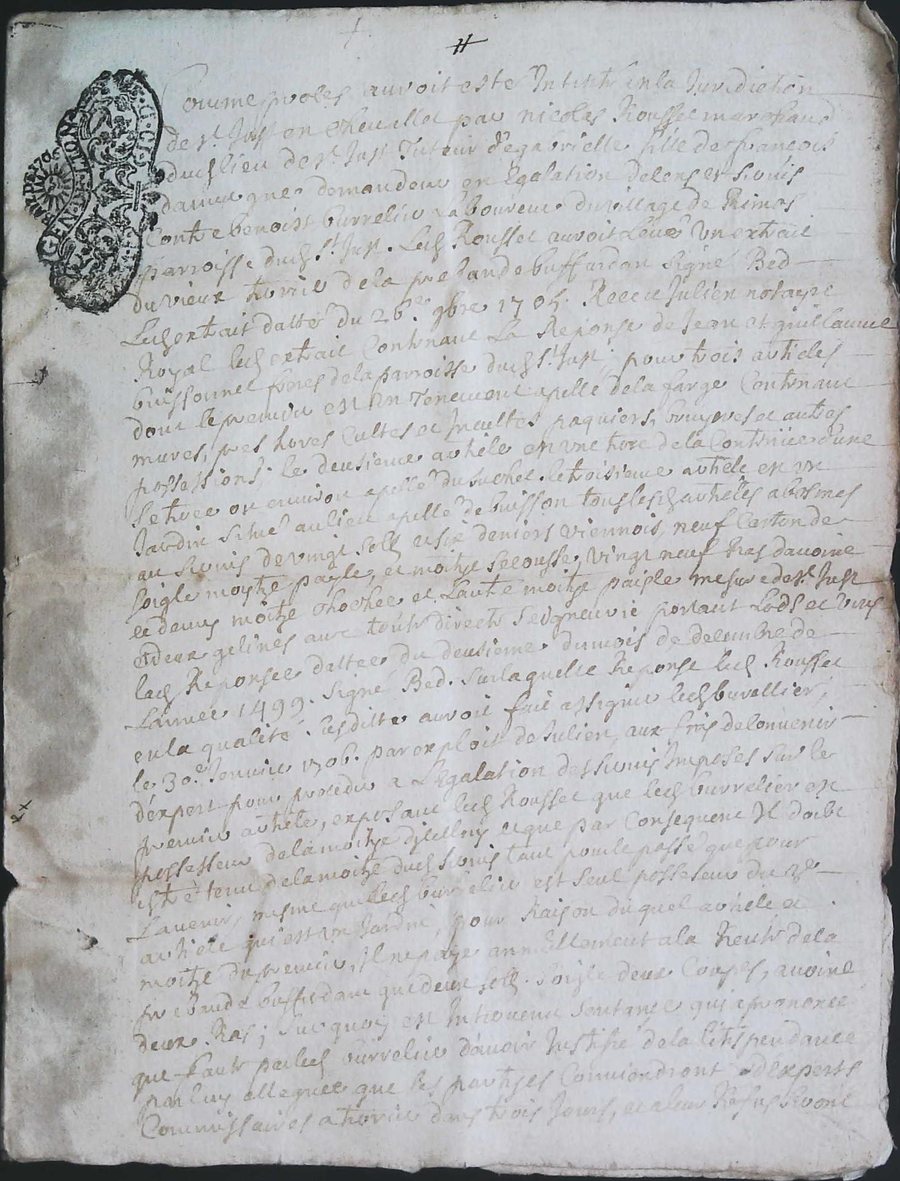 Comme proces auroit esté Intenté en la Jurediction
de st Just en chevallet par nicolas Rousset marchand
dud lieu de st Just Tuteur d'egabrielle fille de francois
damas que demandeur en Egalation de cens et servis
Contre benoist burrelier Laboureur du village de Rimas
parroisse dud st Just. Led Rousset auroit Levé un extrait
du vieux terrier de la prebande buffardan signé Bed
Led extrait datté du 26e 9bre 1705. Receu Julien notaire
Royal led extrait Contenant La Reponse de Jean et guillaume
buissonnet freres de la parroisse dud st Just, pour trois articles
dont le premier est un Tenement apellé de la farge Contenant
mures, pres terres Cultes et Incultes paquiers, bruyeres et autres
possessions. le deusieme article est une terre de la Contenüe d'une
seterée ou environ apellé du suchet. le troisieme article est un
Jardin situé au lieu apellé de buisson tous lesd articles abosnes
au servis de vingt solz et six deniers viennois, neuf Carton de
soigle moitye paisle, et moitye secousse, vingt neuf Ras davoine
et demy moitye chochee et Lautre moitye paisle mesure de st Just
et deux gelines avec toute directe seigneurie portant Lods et vens
lad Reponse dattée du deusieme du mois de decembre de
Lannée 1499. signé Bed. sur laquelle Reponse led Rousset
en la qualité susditte auroit fait assigner led burellier,
le 30e Janvier 1706. par exploit de Julien, aux fins de convenir
d'expert pour proceder a L'egalation des servis Imposes sur le
premier article, exposant led Rousset que led burrelier est
possesseur de la moitye d'icelluy et que par Consequent Il doibt
estre tenu de la moitye dud servis tant pour le passé que pour
Lavenir, mesme que led burrelier est seul possesseur du 3e
article qui est un Jardin, pour Raison duquel article et
moitye du premier, Il ne paye annuellement a la Rente de la
prebande buffardant que deux solz. soigle deux Coupes, avoine
deux Ras; sur quoy est Intervenu sentance qui prononce
que faute par led burrelier d'avoir Justifié de la litispendance
par luy alleguée que les partyes Conviendront d'experts
Commissaires a terrier dans trois Jours, et a leur Refus seront